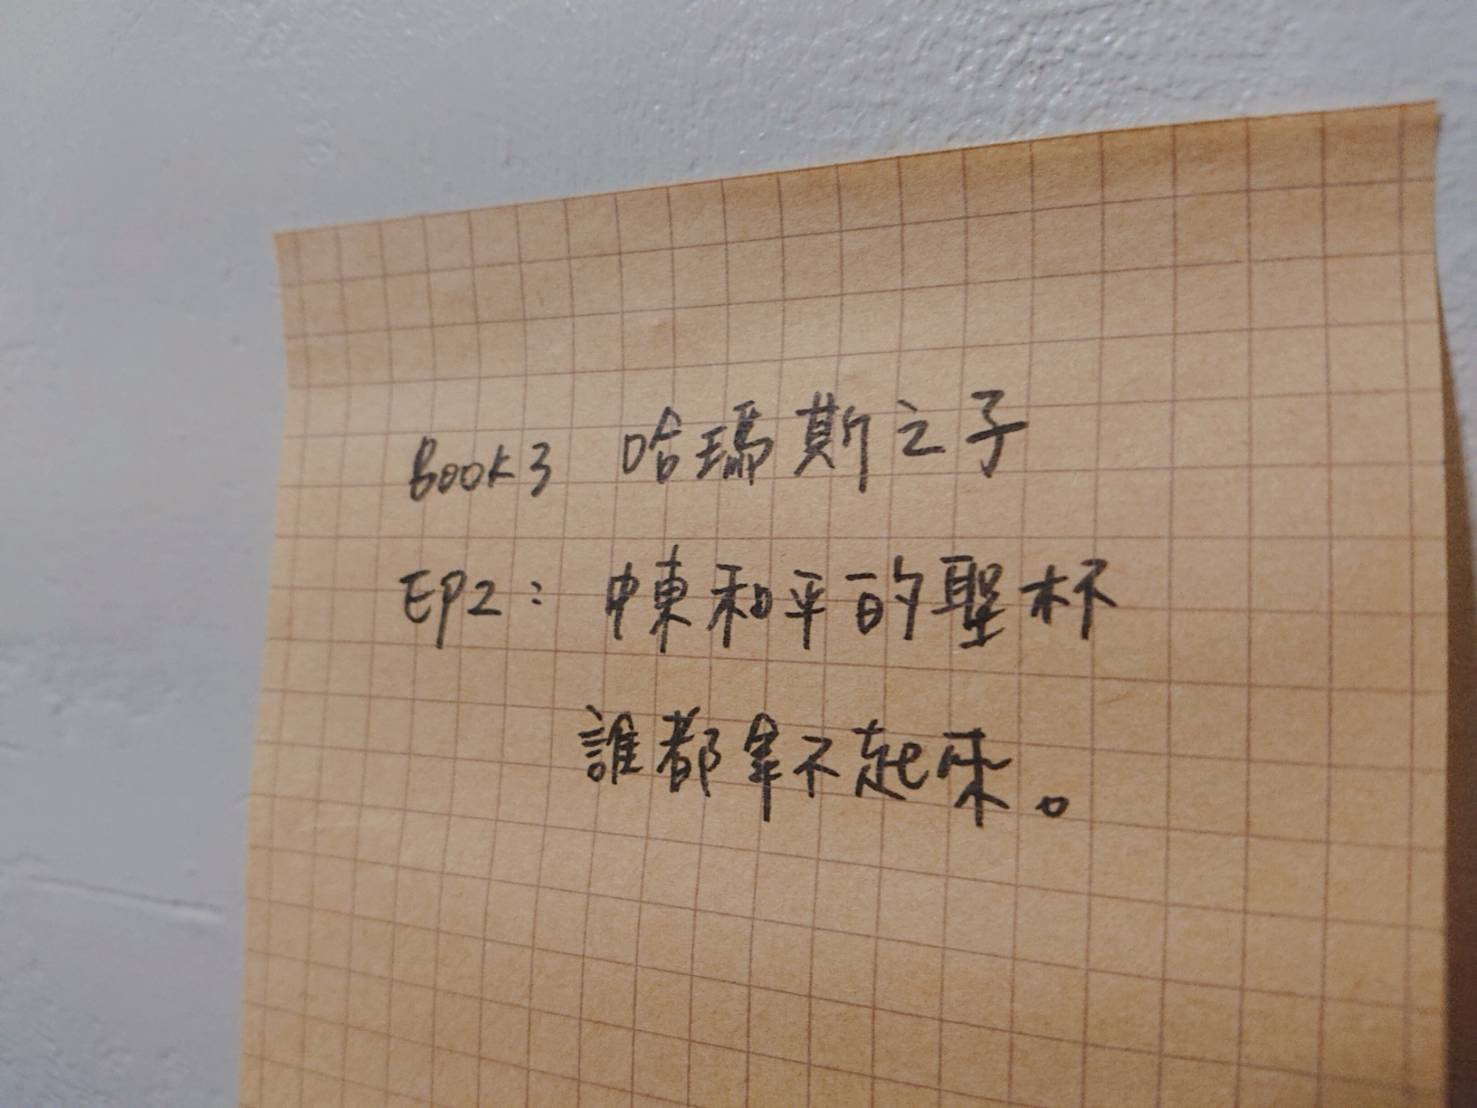 Book3 哈瑪斯之子
EP2：中東和平的聖杯
誰都拿不起來。